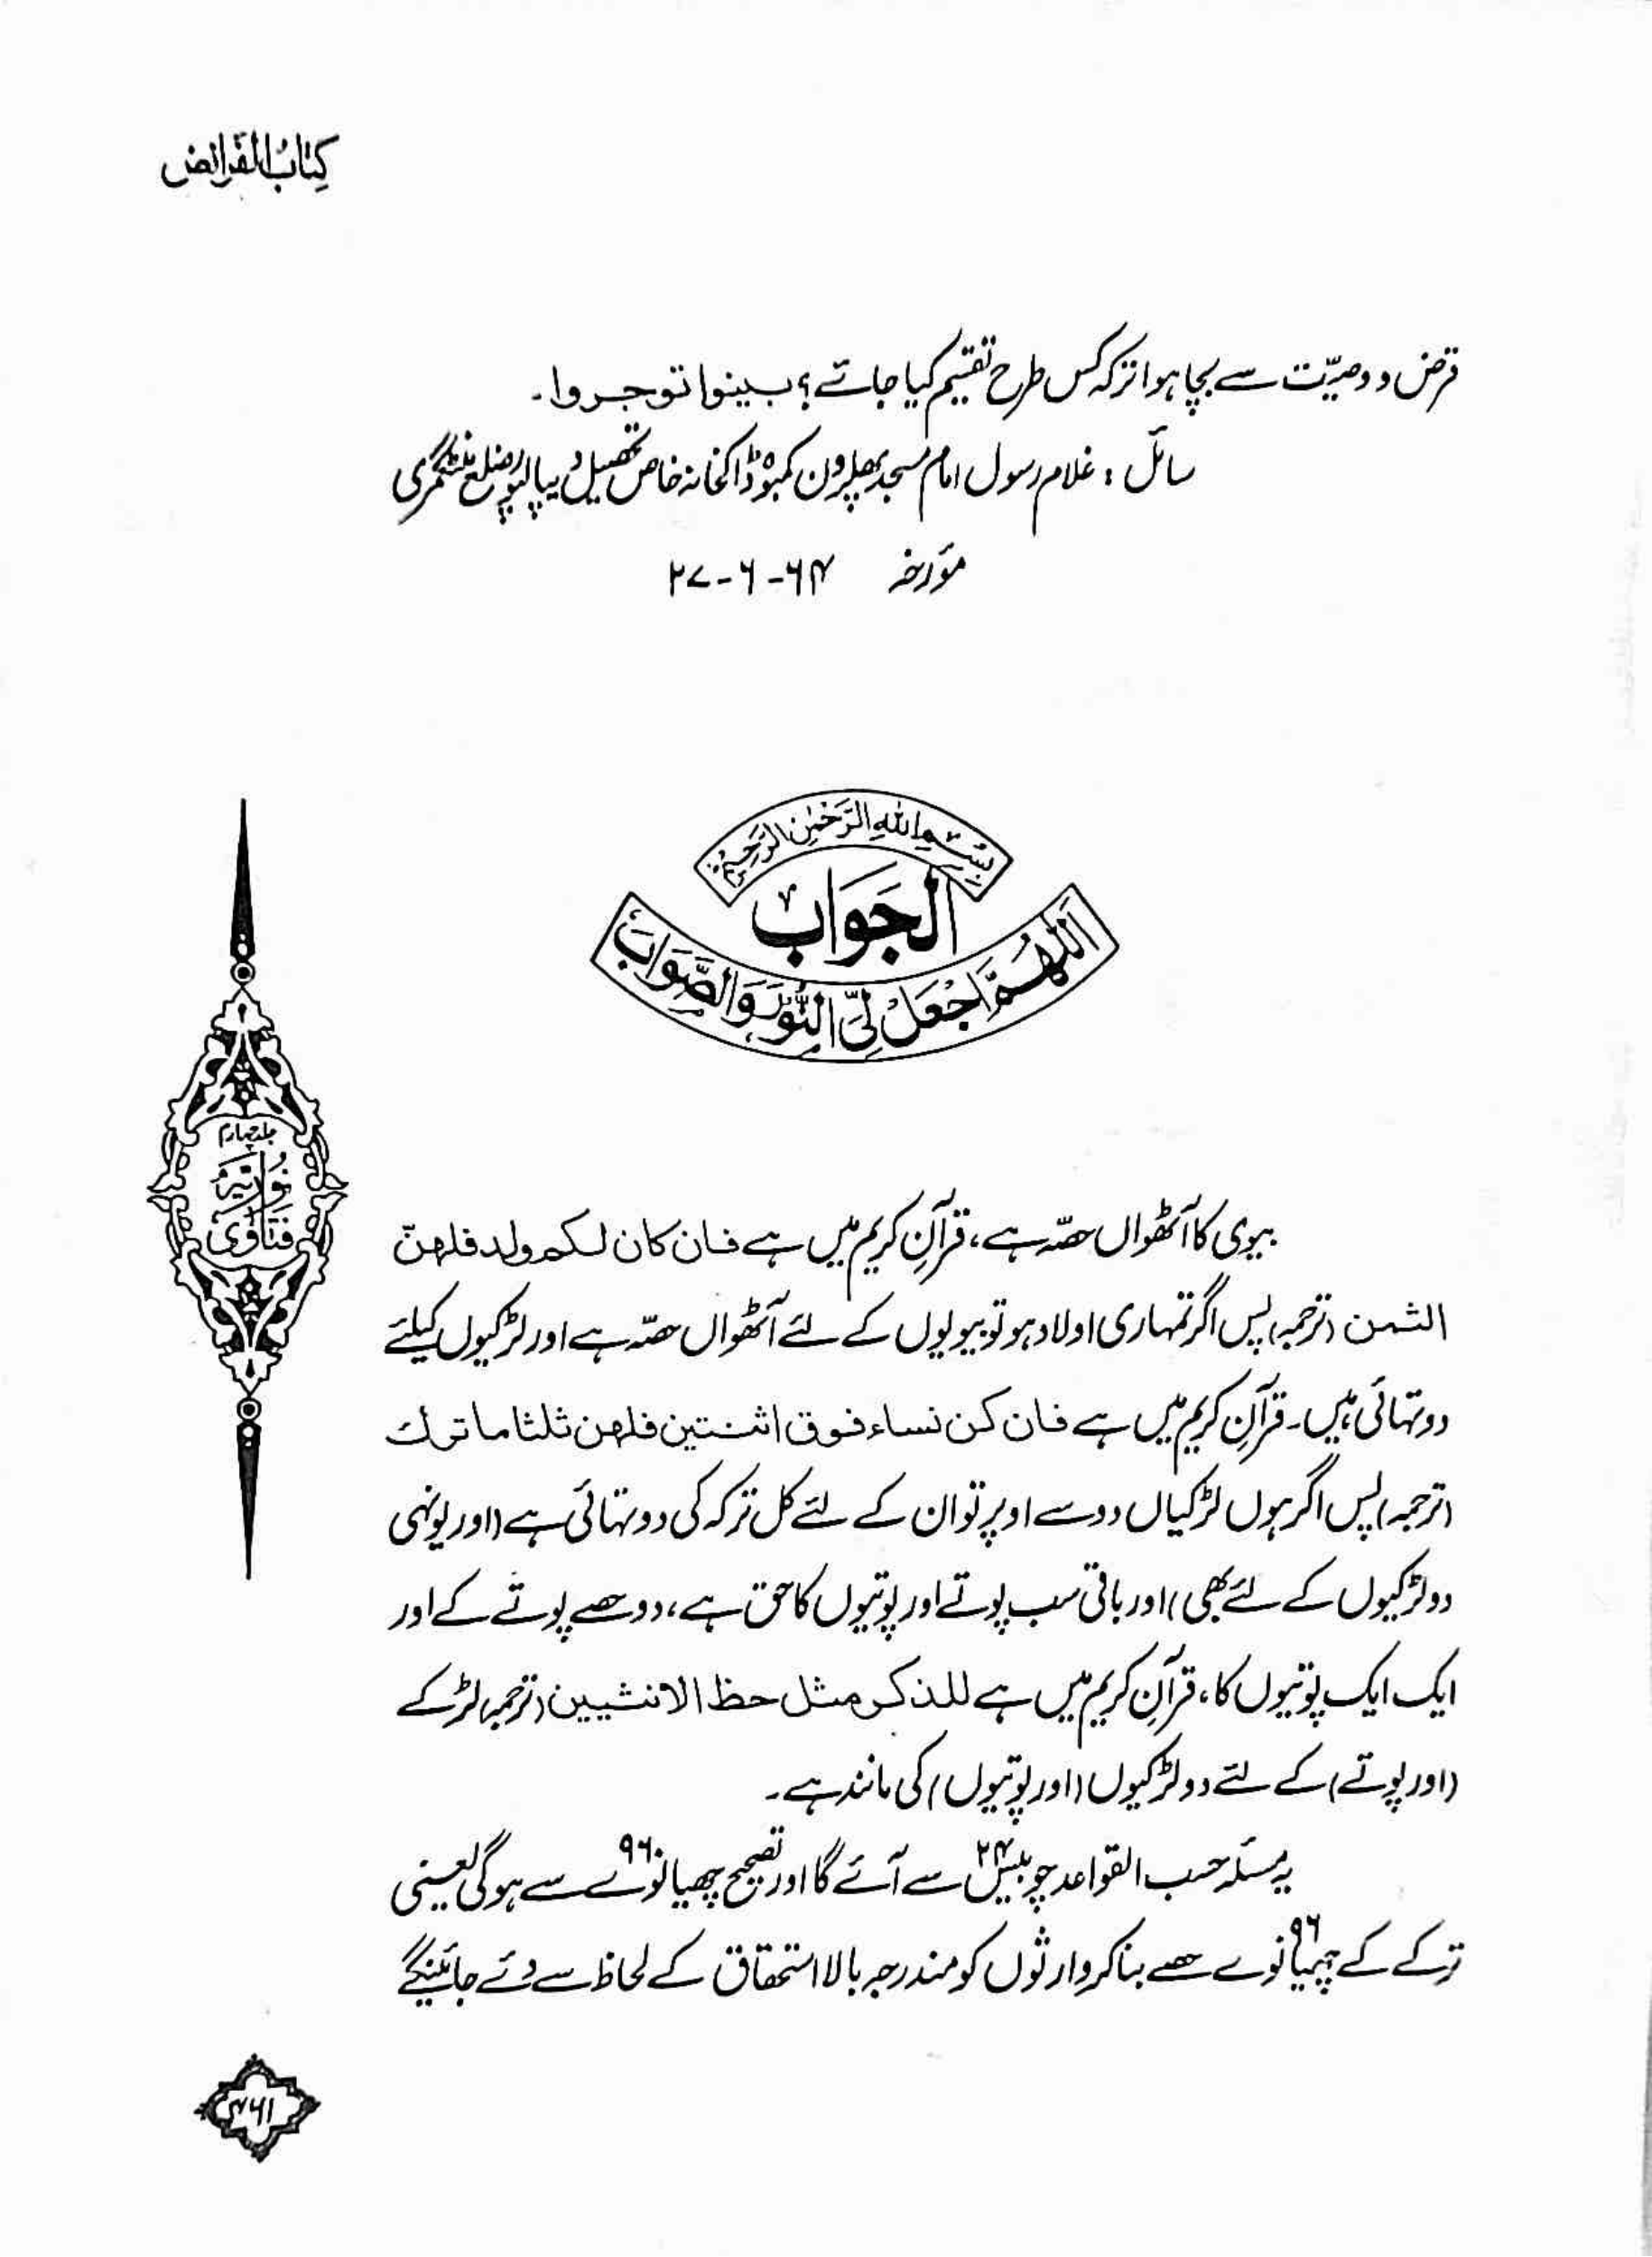 کِتَابُ الفَرائض
قرض و وصیّت سے بچا ہوا ترکہ کس طرح تقسیم کیا جائے؟ بینوا توجروا۔
سائل : غلام رسول امام مسجد کمبوہ ڈاکخانہ خاص تحصیل دیپالپور ضلع منٹگمری
مؤرخہ ۲۷-۶-۶۴
بِسْمِ اللهِ الرَّحْمٰنِ الرَّحِيْمِ
الجَوَابُ
اَللّٰهُمَّ اجْعَلْ لِیَ النُّوْرَ وَالصَّوَابَ
جلد چہارم
فتاویٰ نوریہ
بیوی کا آٹھواں حصّہ ہے، قرآنِ کریم میں ہے فان کان لکم ولد فلھنّ
الثمن (ترجمہ) پس اگر تمہاری اولاد ہو تو بیویوں کے لئے آٹھواں حصّہ ہے اور لڑکیوں کیلئے
دو تہائی ہیں۔ قرآنِ کریم میں ہے فان کن نساء فوق اثنتین فلھن ثلثا ما ترک
(ترجمہ) پس اگر ہوں لڑکیاں دو سے اوپر تو ان کے لئے کل ترکہ کی دو تہائی ہے (اور یونہی
دو لڑکیوں کے لئے بھی) اور باقی سب پوتے اور پوتیوں کا حق ہے، دو حصے پوتے کے اور
ایک ایک پوتیوں کا، قرآنِ کریم میں ہے للذکر مثل حظ الانثیین (ترجمہ) لڑکے
(اور پوتے) کے لئے دو لڑکیوں (اور پوتیوں) کی مانند ہے۔
یہ مسئلہ حسب القواعد چوبیس ۲۴ سے آئے گا اور تصحیح چھیانوے ۹۶ سے ہوگی یعنی
ترکے کے چھیانوے ۹۶ حصے بنا کر وارثوں کو مندرجہ بالا استحقاق کے لحاظ سے دئے جائینگے
۴۶۱